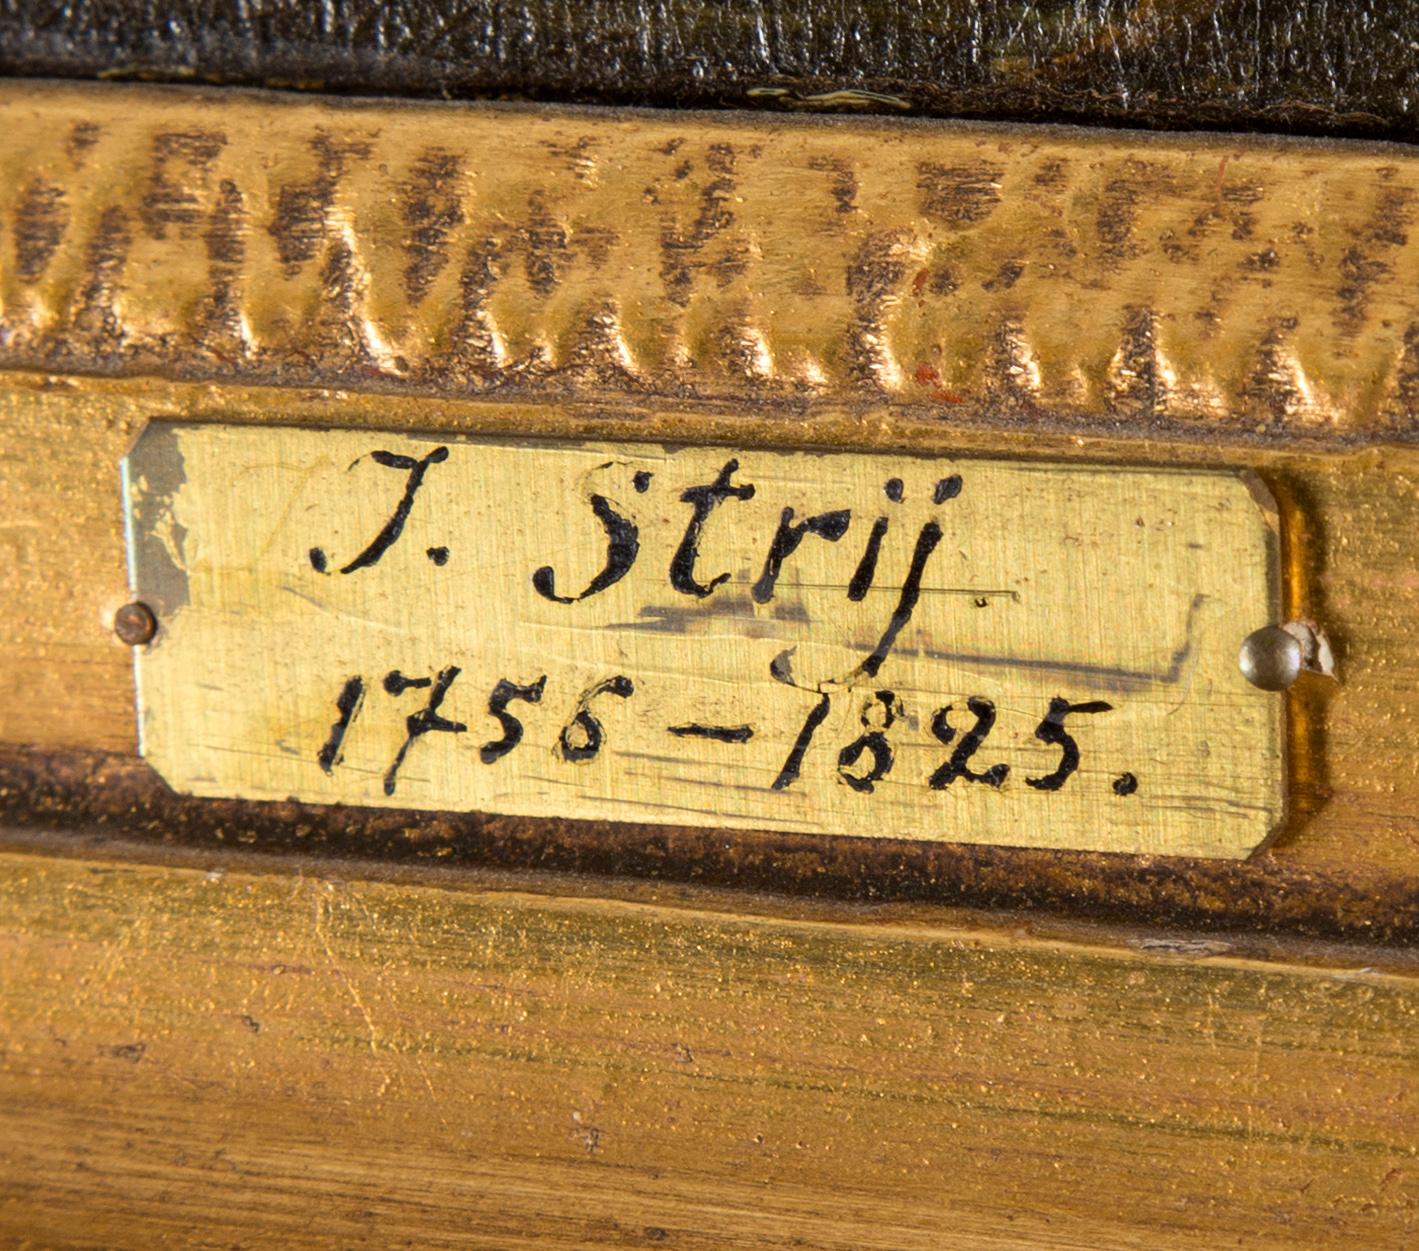 J. Strij
1756 – 1825.